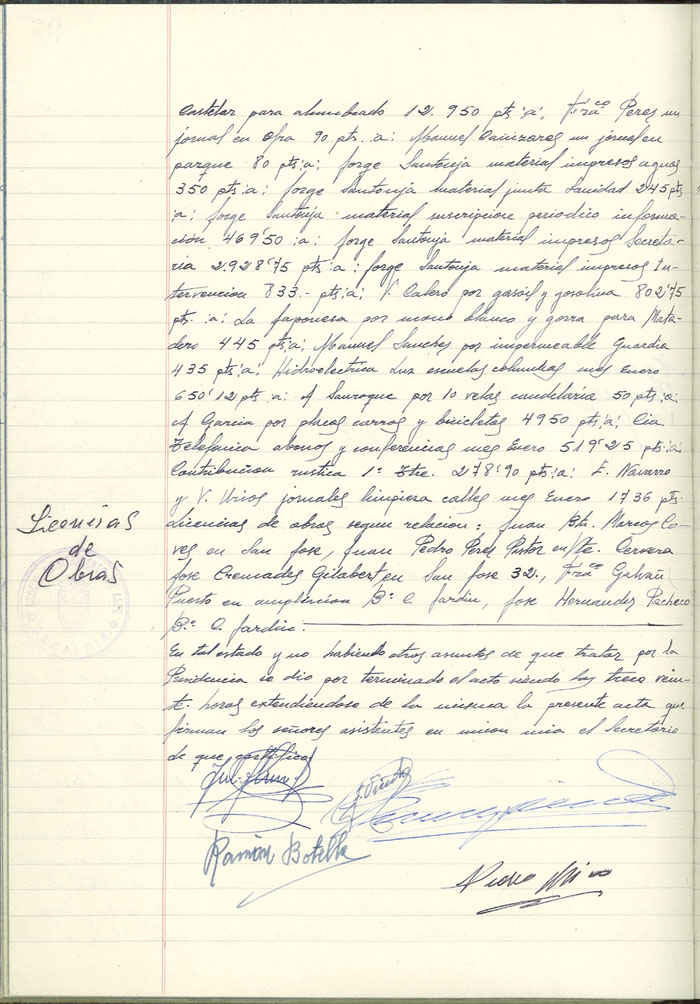 Castelar para alumbrado 12.950 pts:a; Frãco Peres un
jornal en Ofra 90 pts.:a: Manuel Cañizares un jornal en
parque 80 pts:a: Jorge Santonja material impresos aguas
350 pts:a; Jorge Santonja material junta Sanidad 245 pts
:a; Jorge Santonja material suscripcion periodico informa-
ción 469'50 :a: Jorge Santonja material impresos Secreta-
ria 2.928'75 pts:a: Jorge Santonja material impresos In-
tervencion 833.- pts:a; V. Calero por gasoil y gasolina 802'75
pts. :a: La Japonesa por mono blanco y gorra para Mata-
dero 445 pts:a; Manuel Sanches por impermeable Guardia
435 pts:a; Hidroelectrica Luz escuelas columnas mes Enero
650'12 pts:a: A Sauroque por 10 velas candelaria 50 pts:a:
A Garcia por placas carros y bicicletas 4950 pts:a; Cia.
Telefonica abonos y conferencias mes Enero 519'25 pts:a
Contribucion rustica 1º Ttre. 278'90 pts:a: E. Navarro
y V. Vivos jornales limpieza calles mes Enero 1736 pts.
Licencias de obras segun relacion: Juan Bta. Marcos Co-
ves en San Jose, Juan Pedro Peres Pastor en Cervera
Jose Cremades Gilabert en San Jose 32., Frãco Galvañ
Puerto en ampliacion Bº C. Jardin, Jose Hernandez Pacheco
Bº C. Jardin.
Licencias
de
Obras
ALCALDIA
En tal estado y no habiendo otros asuntos de que tratar por la
Presidencia se dio por terminado el acto siendo las trece vein-
te. horas extendiendose de la misma la presente acta que
firman los señores asistentes en union mia el Secretario
de que certifico
Ramón Botella